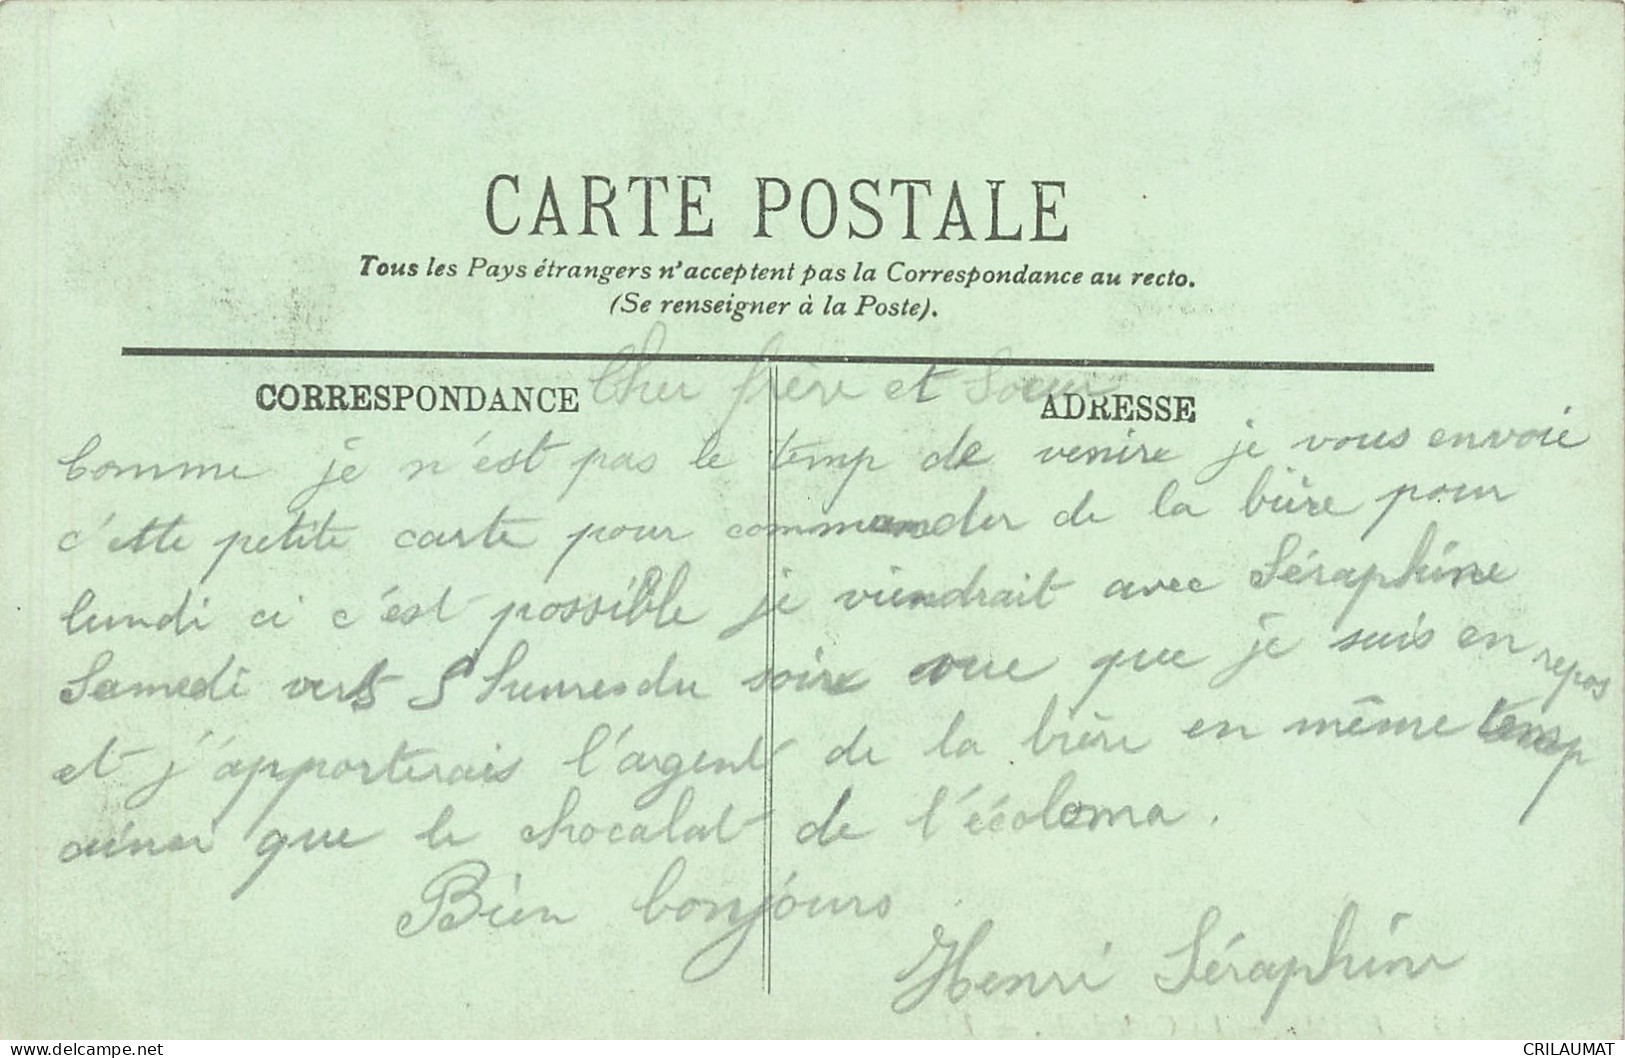 CARTE POSTALE
Tous les Pays étrangers n'acceptent pas la Correspondance au recto.
(Se renseigner à la Poste).
CORRESPONDANCE
ADRESSE
Cher frère et Soeur
Comme je n'est pas le temp de venire je vous envoie
c'ette petite carte pour commander de la bière pour
lundi ci c'est possible je viendrait avec Séraphine
Samedi vers 5 heures du soire vue que je suis en repos
et j'apporterais l'argent de la bière en même temp
ainsi que le chocalat de
Bien bonjours
Henri Séraphine
delcampe.net
CRILAUMAT